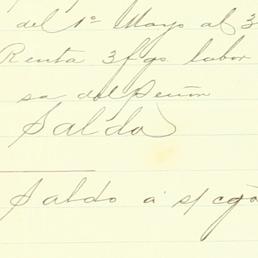 del 1º Mayo al 3
Renta 3 fgs labor
sa del Señor
Saldo
Saldo a s/ cgo